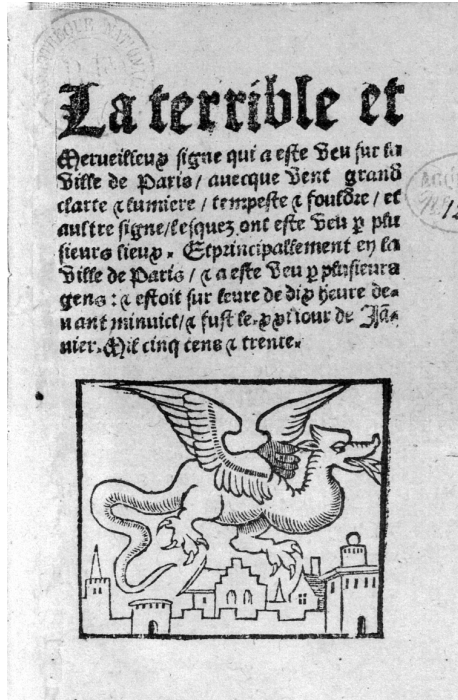 La terrible et
Merveilleux signe qui a este veu sur la
Ville de Paris / avecque vent grand
clarte & lumiere / tempeste & fouldre / et
aultre signe / lesquez ont este veu p plu
sieurs lieux. Et principallement en la
Ville de Paris / & a este veu p plusieurs
gens : & estoit sur leure de dix heure de-
vant minuict / & fust le.xxvi iour de Jã-
vier. Mil cinq cens & trente.